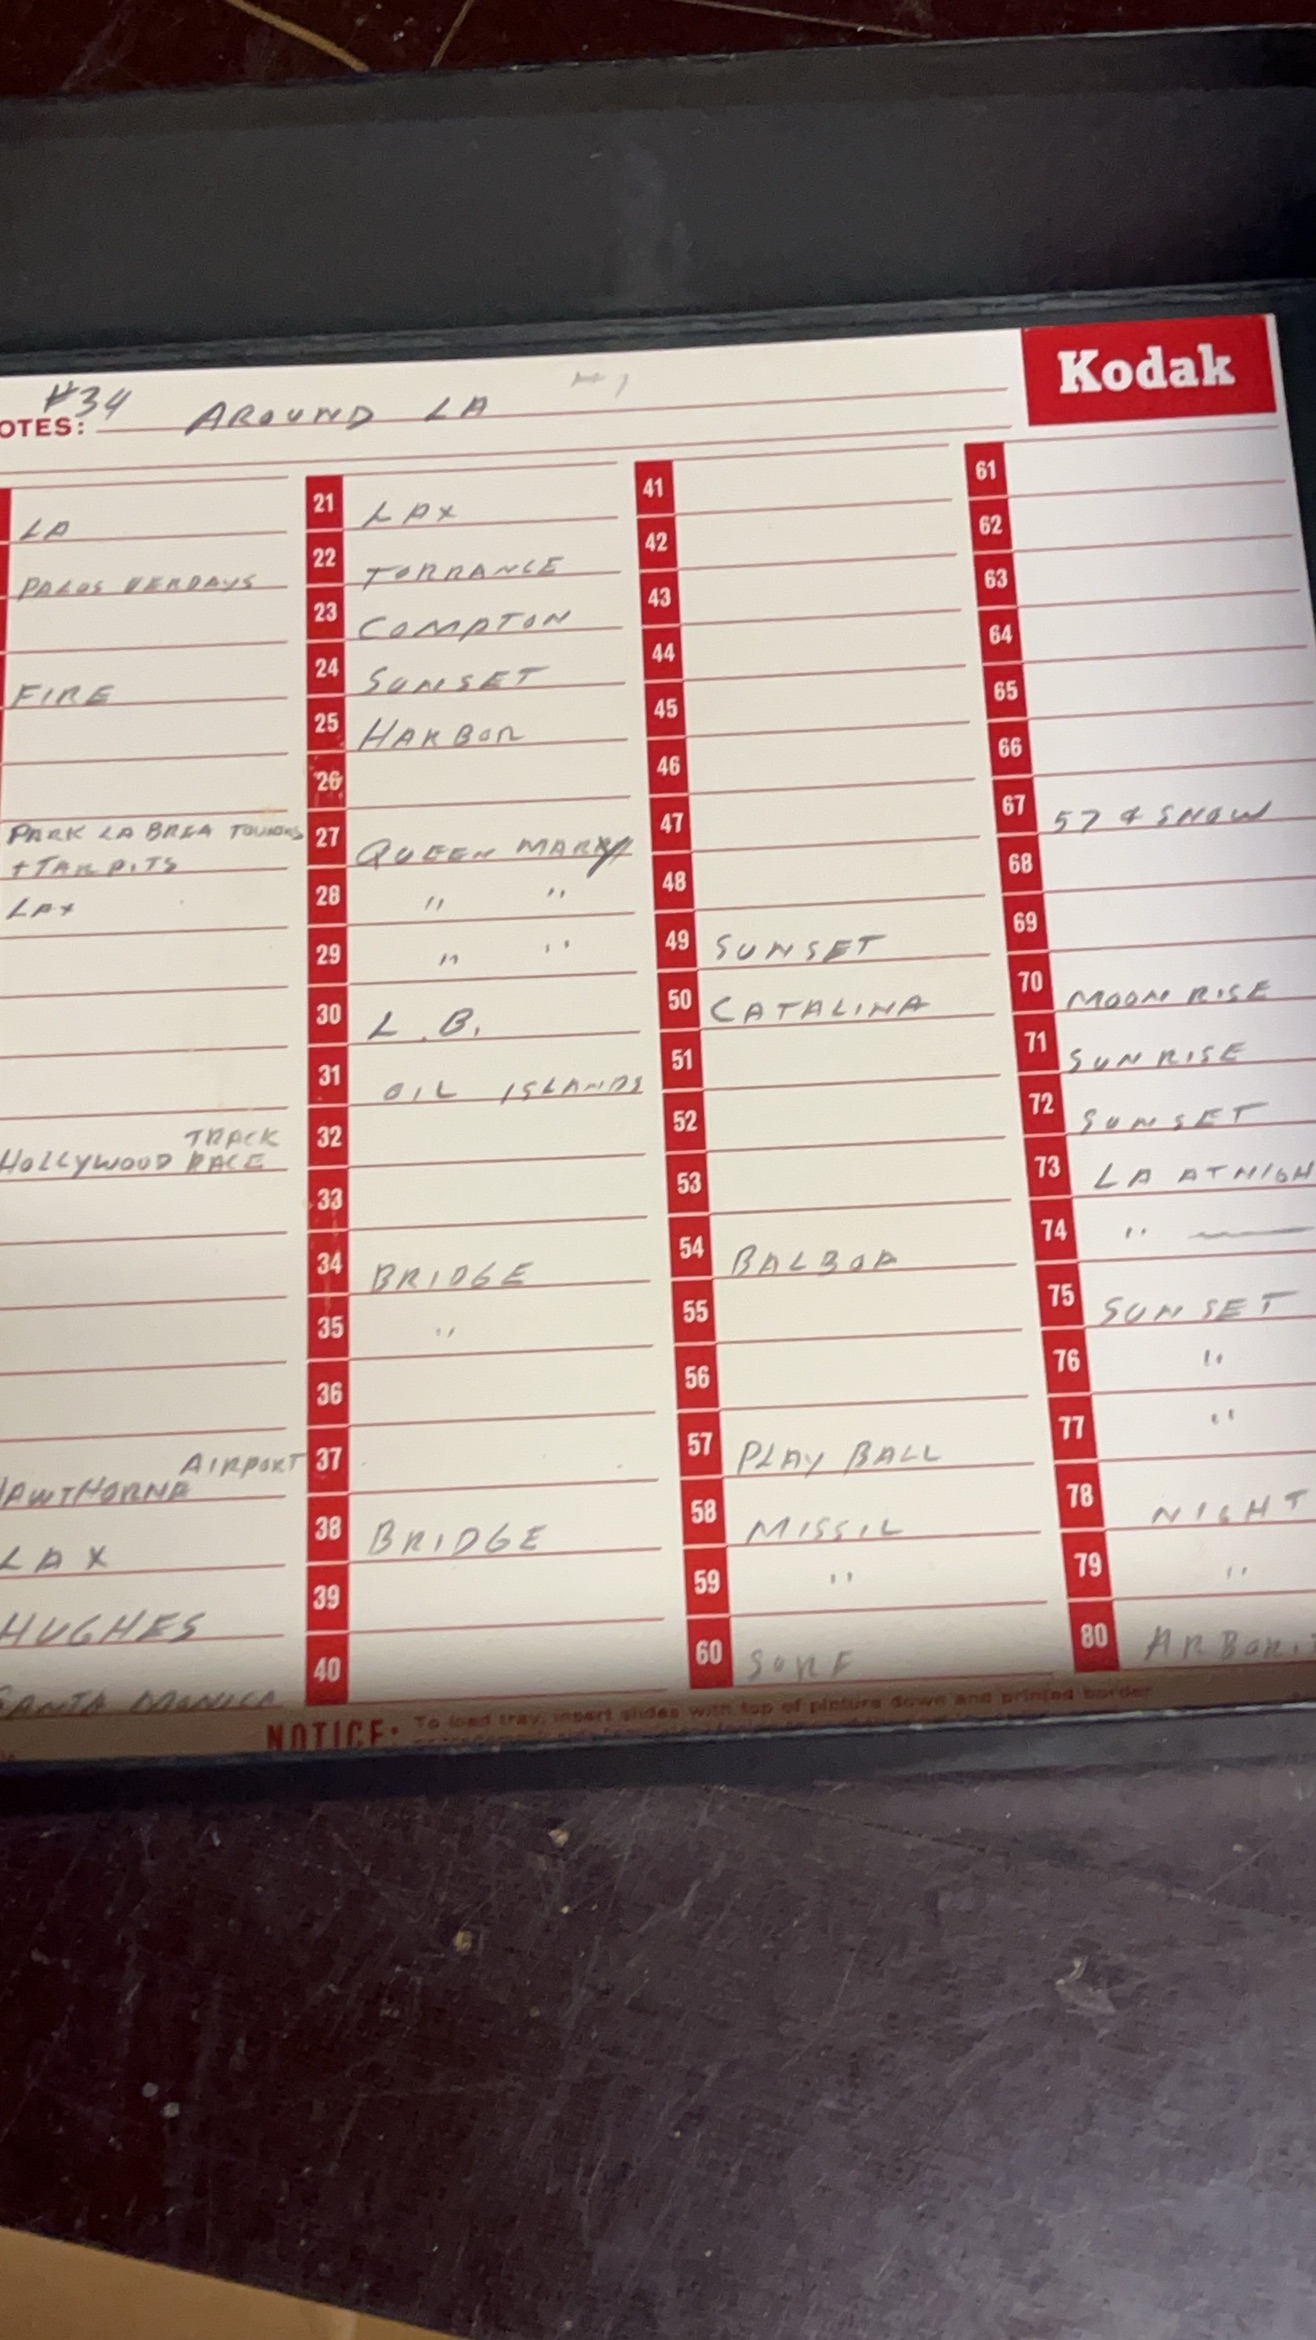 Kodak
#34
#1
OTES: AROUND LA
LA
PALOS VERDAYS
FIRE
PARK LA BREA TOWERS
+ TAR PITS
LAX
TRACK
HOLLYWOOD RACE
AIRPORT
HAWTHORNE
LAX
HUGHES
SANTA MONICA
21 LAX
22 TORRANCE
23 COMPTON
24 SUNSET
25 HARBOR
26
27 QUEEN MARY
28 " "
29 " "
30 L.B.
31 OIL ISLANDS
32
33
34 BRIDGE
35 "
36
37
38 BRIDGE
39
40
41
42
43
44
45
46
47
48
49 SUNSET
50 CATALINA
51
52
53
54 BALBOA
55
56
57 PLAY BALL
58 MISSIL
59 "
60 SURF
61
62
63
64
65
66
67 57 & SNOW
68
69
70 MOON RISE
71 SUNRISE
72 SUNSET
73 LA AT NIGH
74 "
75 SUNSET
76 "
77 "
78 NIGHT
79 "
80
NOTICE: To load tray, insert slides with top of picture down and printed border